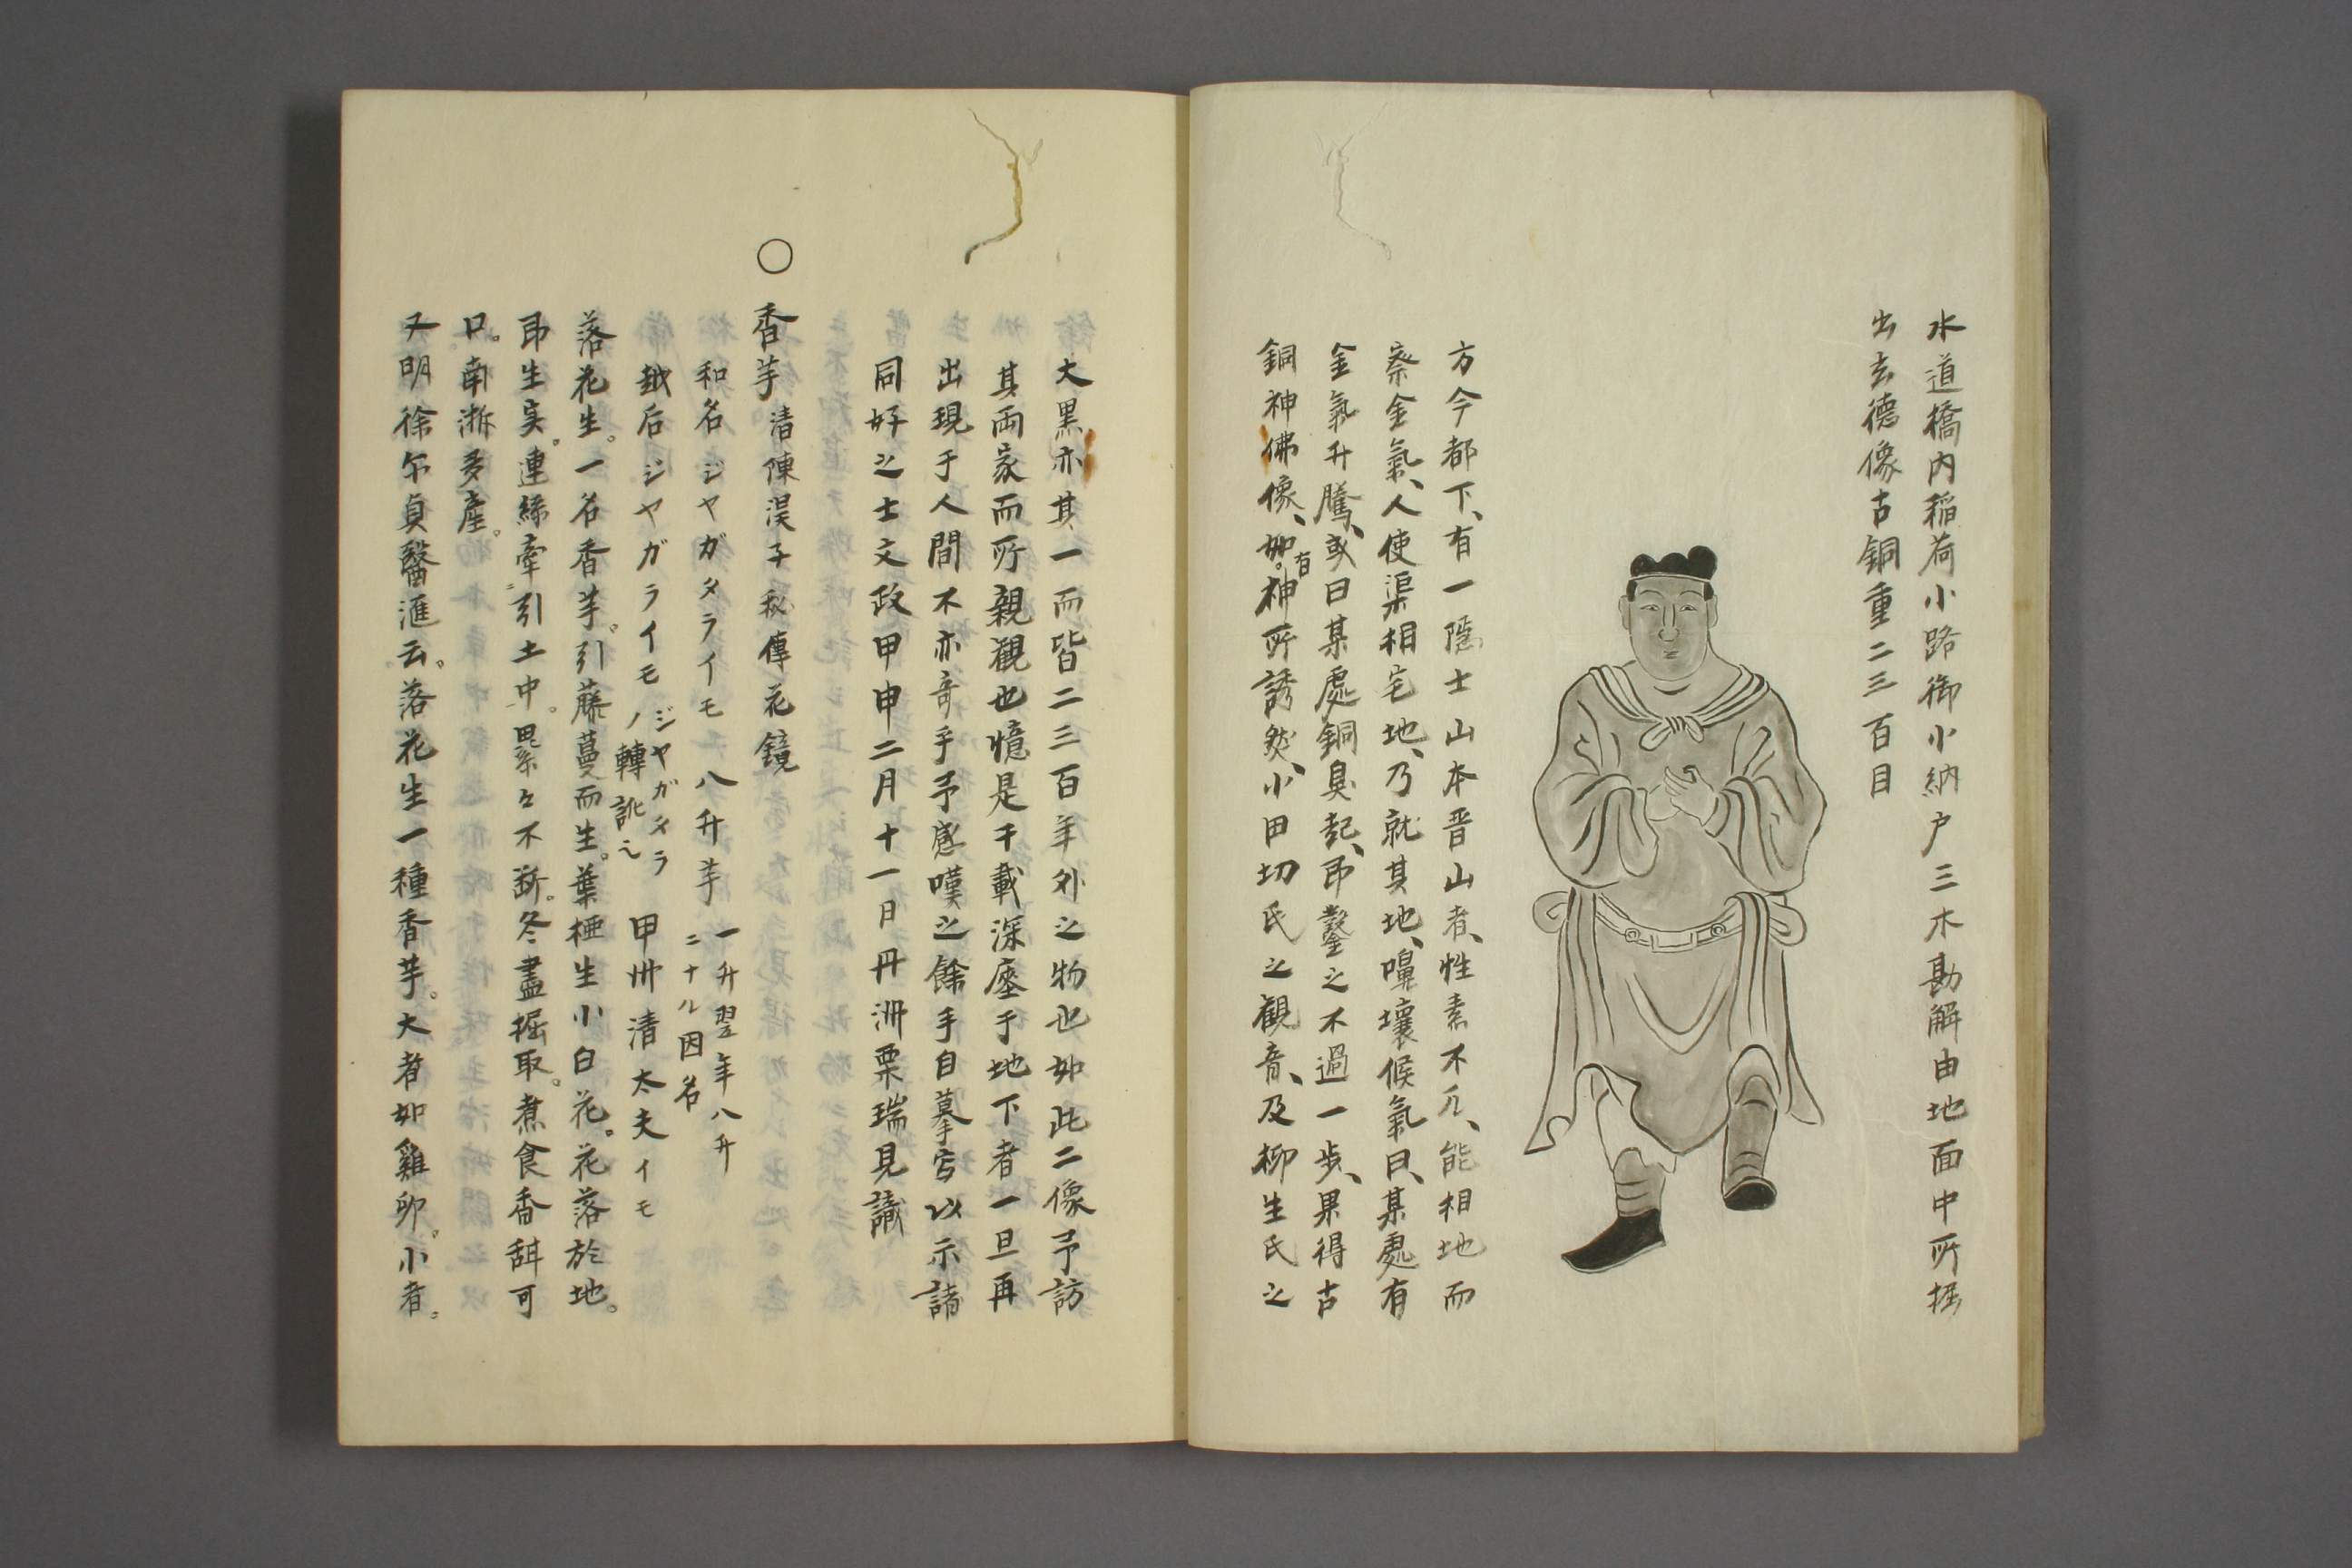 水道橋内稲荷小路御小納戸三木勘解由地面中所掘
出玄德像古銅重二三百目
方今都下、有一隱士山本晋山者、性素不凡、能相地而
察金氣、人使渠相宅地、乃就其地、嗅壤候氣曰、某處有
金氣升騰、或曰某處銅臭起、即鑿之不過一步、果得古
銅神佛像、如有神所誘然、小田切氏之觀音、及柳生氏之
大黒亦其一而皆二三百年外之物也如此二像予訪
其両家而所親觀也憶是千載深蟄于地下者一旦再
出現于人間不亦奇乎予感嘆之餘手自摹写以示諸
同好之士文政甲申二月十一日丹洲栗瑞見識
○香芋 清陳淏子秘傳花鏡
和名ジヤガタライモ 八升芋 一升翌年八升
ニナル因名
越后ジヤガライモ ジヤガタラ
ノ轉訛也 甲州清太夫イモ
落花生。一名香芋。引藤蔓而生。葉椏生小白花。花落於地。
即生実。連絲牽引土中。累々不断。冬盡掘取。煮食香甜可
口。南浙多産。
又明徐尓貞醫滙云。落花生一種香芋。大者如雞卵。小者。